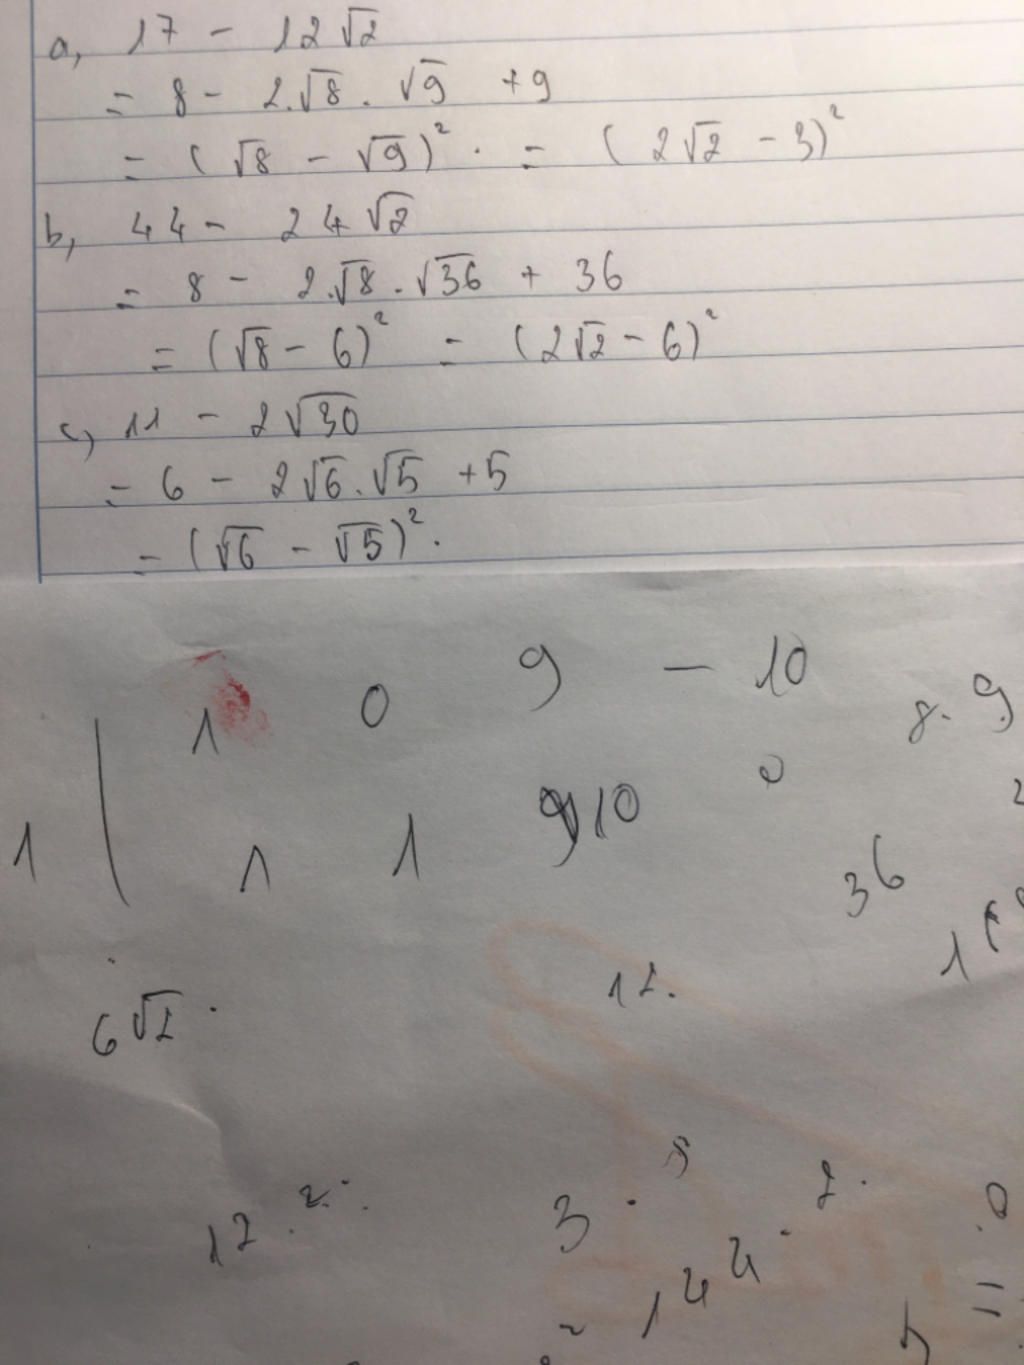 a, 17 - 12√2
= 8 - 2.√8 . √9 + 9
= (√8 - √9)² . = (2√2 - 3)²
b, 44 - 24√2
= 8 - 2.√8 . √36 + 36
= (√8 - 6)² = (2√2 - 6)²
c, 11 - 2√30
= 6 - 2√6 . √5 + 5
= (√6 - √5)² .
1 0 9 - 10
8. 9
1 1 1 10 0
36
6√2 .
12.
12 . 2 .
3 .
144 . 2 .